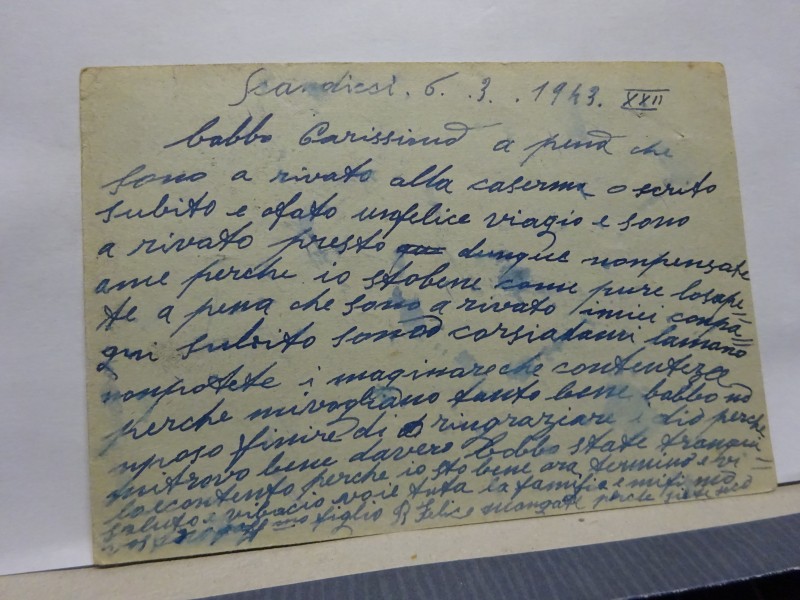 Scandicci. 6. 3. 1943. XXII
babbo Carissimo a pena che
sono a rivato alla caserma o scrito
subito e ofato unfelice viagio e sono
a rivato presto dunque nonpensate
ame perche io stobene come pure losape=
te a pena che sono a rivato imiei conpa=
gni subito sono corsiadarmi lamano
nonpotete i maginare che contenteza
perche mivogliano tanto bene babbo no
nposo finire di ringraziare i dio perche
mitrovo bene davero babbo state tranqui=
loecontento perche io sto bene ora termino e vi
saluto e vibacio voi e tuta la famiglia e mi
figlio Felice mangate perche